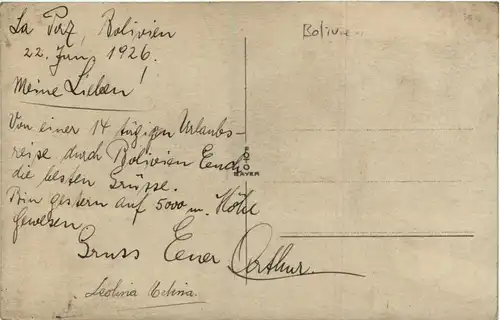 La Paz, Bolivien
22. Juni 1926.
Meine Lieben!
Von einer 14 tägigen Urlaubs-
reise durch Bolivien Euch
die besten Grüsse.
Bin gestern auf 5000 m. Höhe
gewesen
Gruss Euer Arthur.
Bolivien
FOTO
BAYER